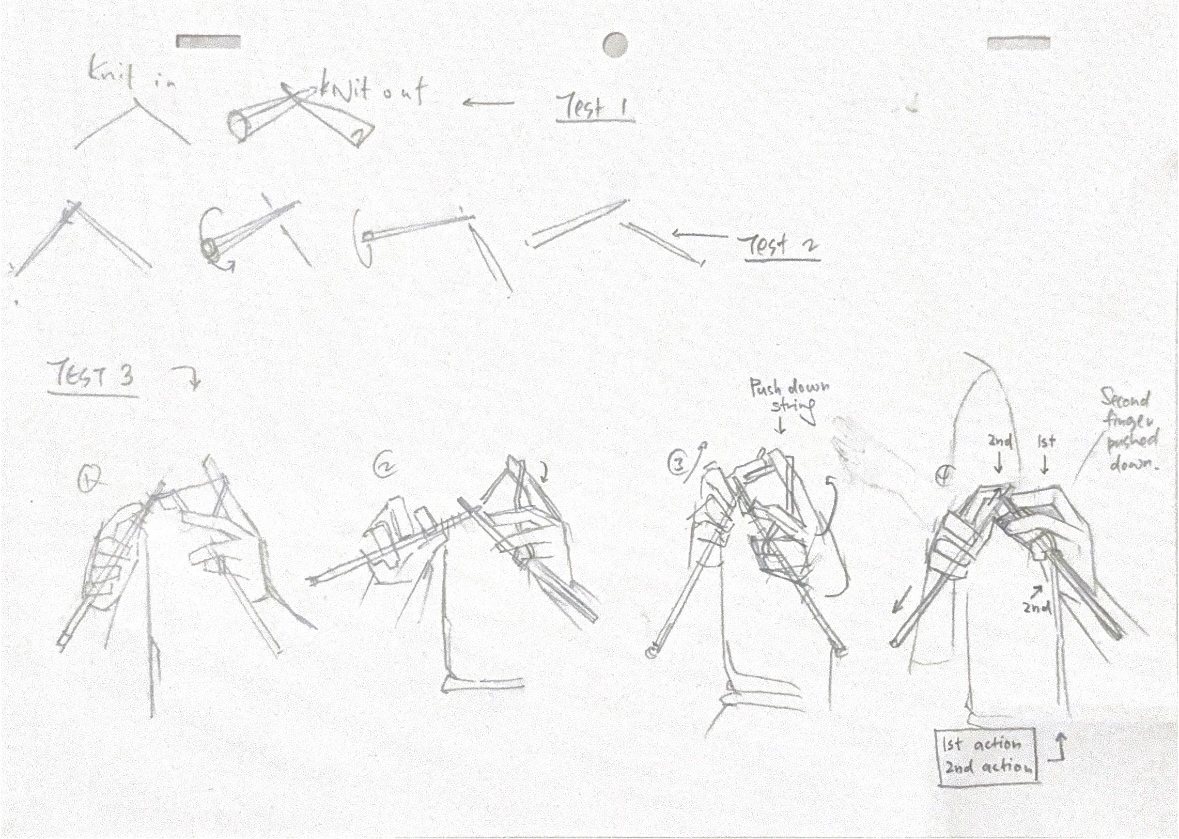 Knit in
kNit out
Test 1
Test 2
TEST 3
①
②
③
Push down
string
④
2nd
1st
Second
finger
pushed
down.
2nd
1st action
2nd action